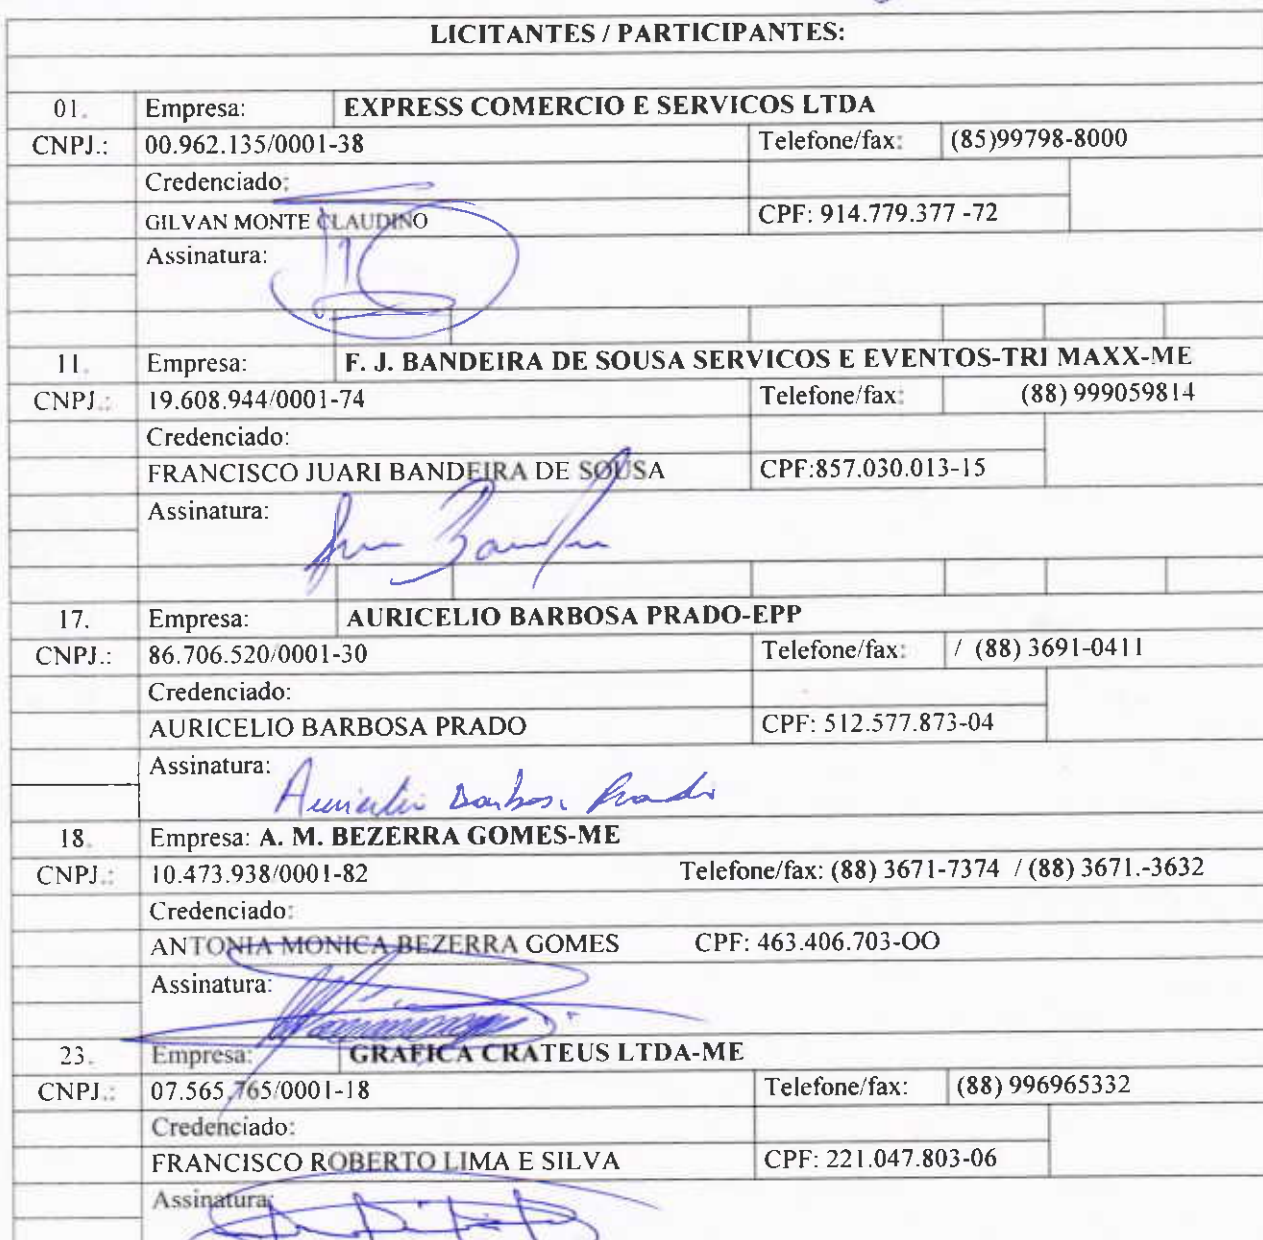 LICITANTES / PARTICIPANTES:
01. Empresa: EXPRESS COMERCIO E SERVICOS LTDA
CNPJ.: 00.962.135/0001-38 Telefone/fax: (85)99798-8000
Credenciado:
GILVAN MONTE CLAUDINO CPF: 914.779.377 -72
Assinatura:
11. Empresa: F. J. BANDEIRA DE SOUSA SERVICOS E EVENTOS-TRI MAXX-ME
CNPJ.: 19.608.944/0001-74 Telefone/fax: (88) 999059814
Credenciado:
FRANCISCO JUARI BANDEIRA DE SOUSA CPF:857.030.013-15
Assinatura:
17. Empresa: AURICELIO BARBOSA PRADO-EPP
CNPJ.: 86.706.520/0001-30 Telefone/fax: / (88) 3691-0411
Credenciado:
AURICELIO BARBOSA PRADO CPF: 512.577.873-04
Assinatura: Auricelio Barbosa Prado
18. Empresa: A. M. BEZERRA GOMES-ME
CNPJ.: 10.473.938/0001-82 Telefone/fax: (88) 3671-7374 / (88) 3671.-3632
Credenciado:
ANTONIA MONICA BEZERRA GOMES CPF: 463.406.703-OO
Assinatura:
23. Empresa: GRAFICA CRATEUS LTDA-ME
CNPJ.: 07.565.765/0001-18 Telefone/fax: (88) 996965332
Credenciado:
FRANCISCO ROBERTO LIMA E SILVA CPF: 221.047.803-06
Assinatura: